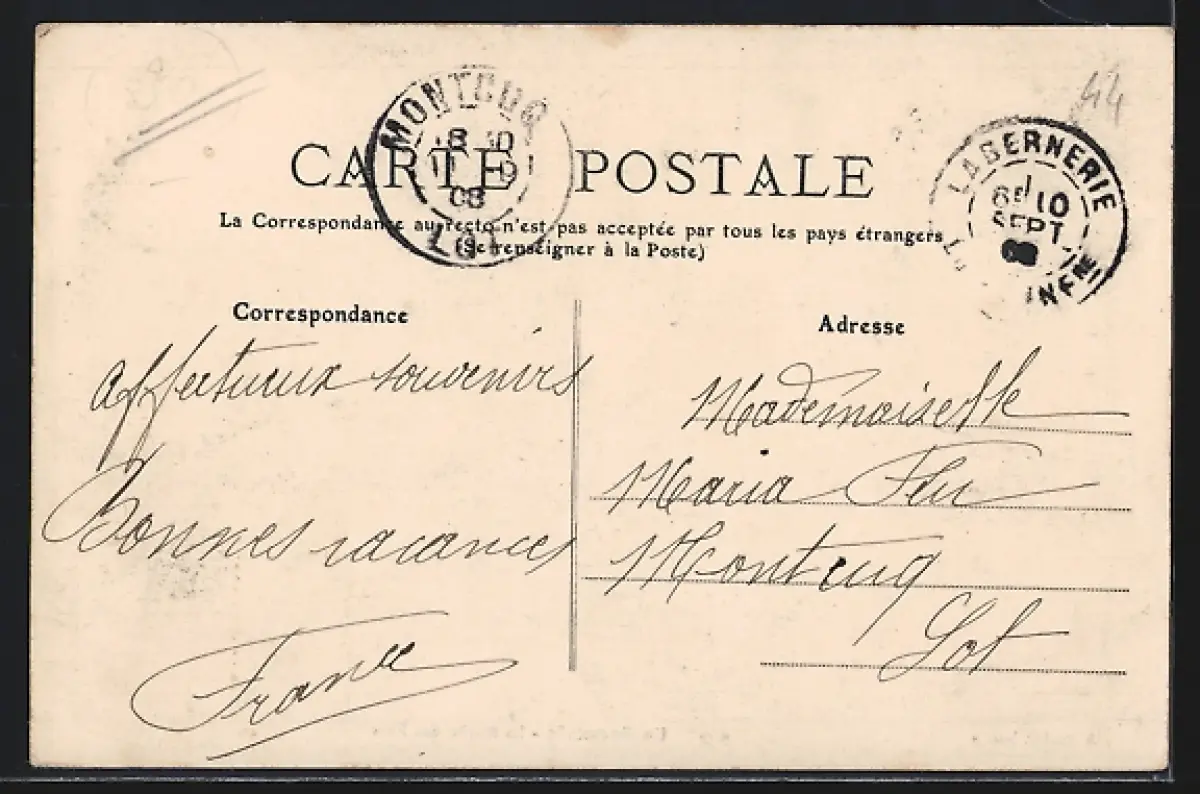 44
MONTCUQ
8
08
LOT
LABERNERIE
10
SEPT
INFRE
CARTE POSTALE
La Correspondance au recto n'est pas acceptée par tous les pays étrangers
(Se renseigner à la Poste)
Correspondance
affectueux souvenirs
Bonnes vacances
Adresse
Mademoiselle
Maria
Montcuq
Lot